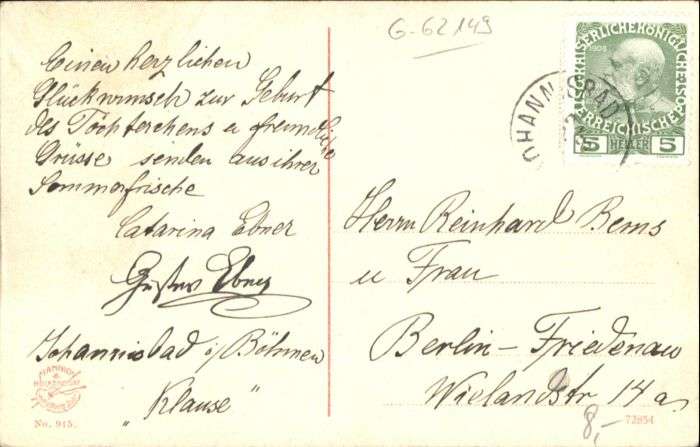 G-62149
Einen herzlichen
Glückwunsch zur Geburt
des Töchterchens u freundliche
Grüsse senden aus ihrer
Sommerfrische
Catarina Ebner
Gustav Ebner
Johannisbad i/Böhmen
"Klause"
No. 915.
KAISERLICHE KÖNIGLICHE
ÖSTERREICHISCHE
1908
5 HELLER 5
JOHANNISBAD
Herrn Reinhard Bems
u Frau
Berlin-Friedenau
Wielandstr 14 a
8,-
72954